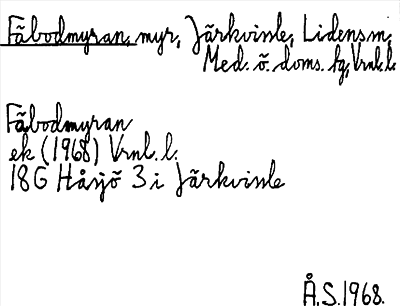 Fäbodmyran, myr, Järkvissle, Lidens sn,
Med. ö. doms. fg, Vrnl. l.
Fäbodmyran
ek (1968) Vrnl. l.
18G Håsjö 3 i Järkvissle
Å.S. 1968.